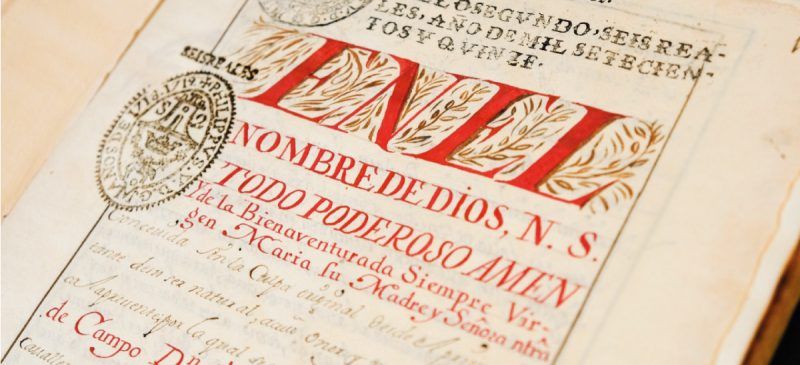 LO SEGVNDO, SEIS REA-
LES, AÑO DE MIL SETECIEN-
TOS Y QVINZE.
SEISREALES
1718.1719. PHILIPPVS. V. D. G.
EN EL
NOMBRE DE DIOS, N. S.
TODO PODEROSO AMEN
Y de la Bienaventurada Siempre Vir-
gen Maria su Madre y Señora ntrã
Concevida sin la Culpa original desde el
ser natural,
por la qual
de Campo Dn